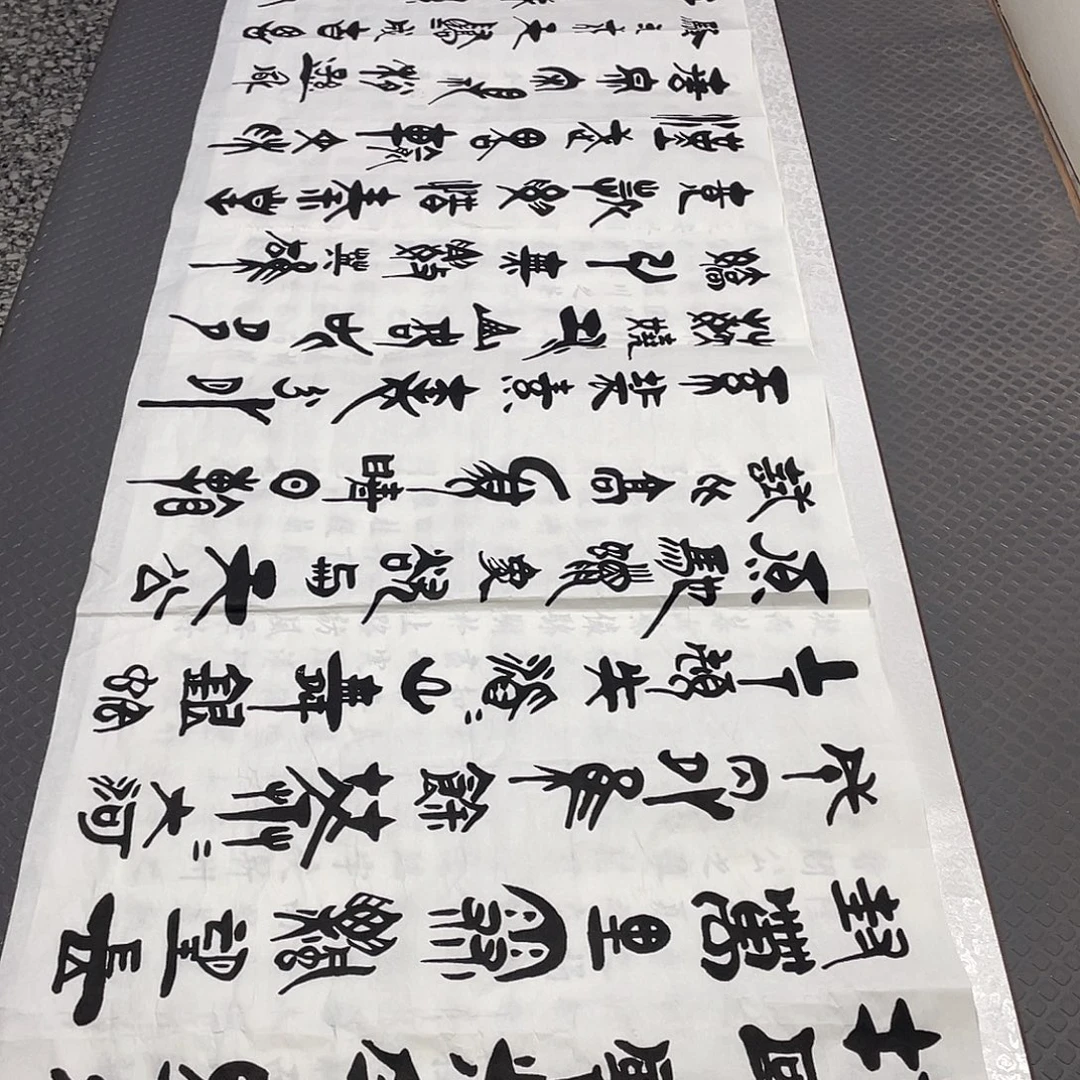 北國風光千里冰
封萬里雪飄望長
城内外惟餘莽=大河
上下頓失滔=山舞銀蛇
原馳蠟象欲與天公
試比高須晴日看
紅裝素裹分外
妖嬈江山如此多
嬌引無數英雄
競折腰惜秦皇
漢武略輸文采
唐宗宋祖稍遜風
騷一代天驕成吉思